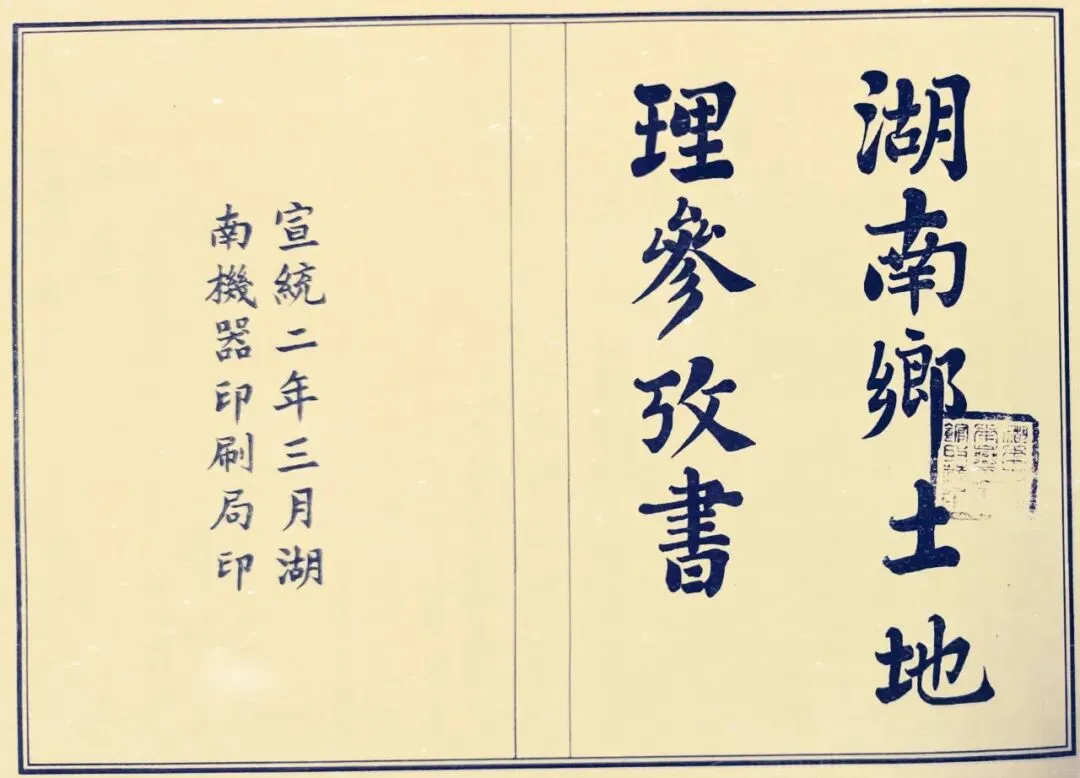 湖南鄉土地
理參攷書
宣統二年三月湖
南機器印刷局印